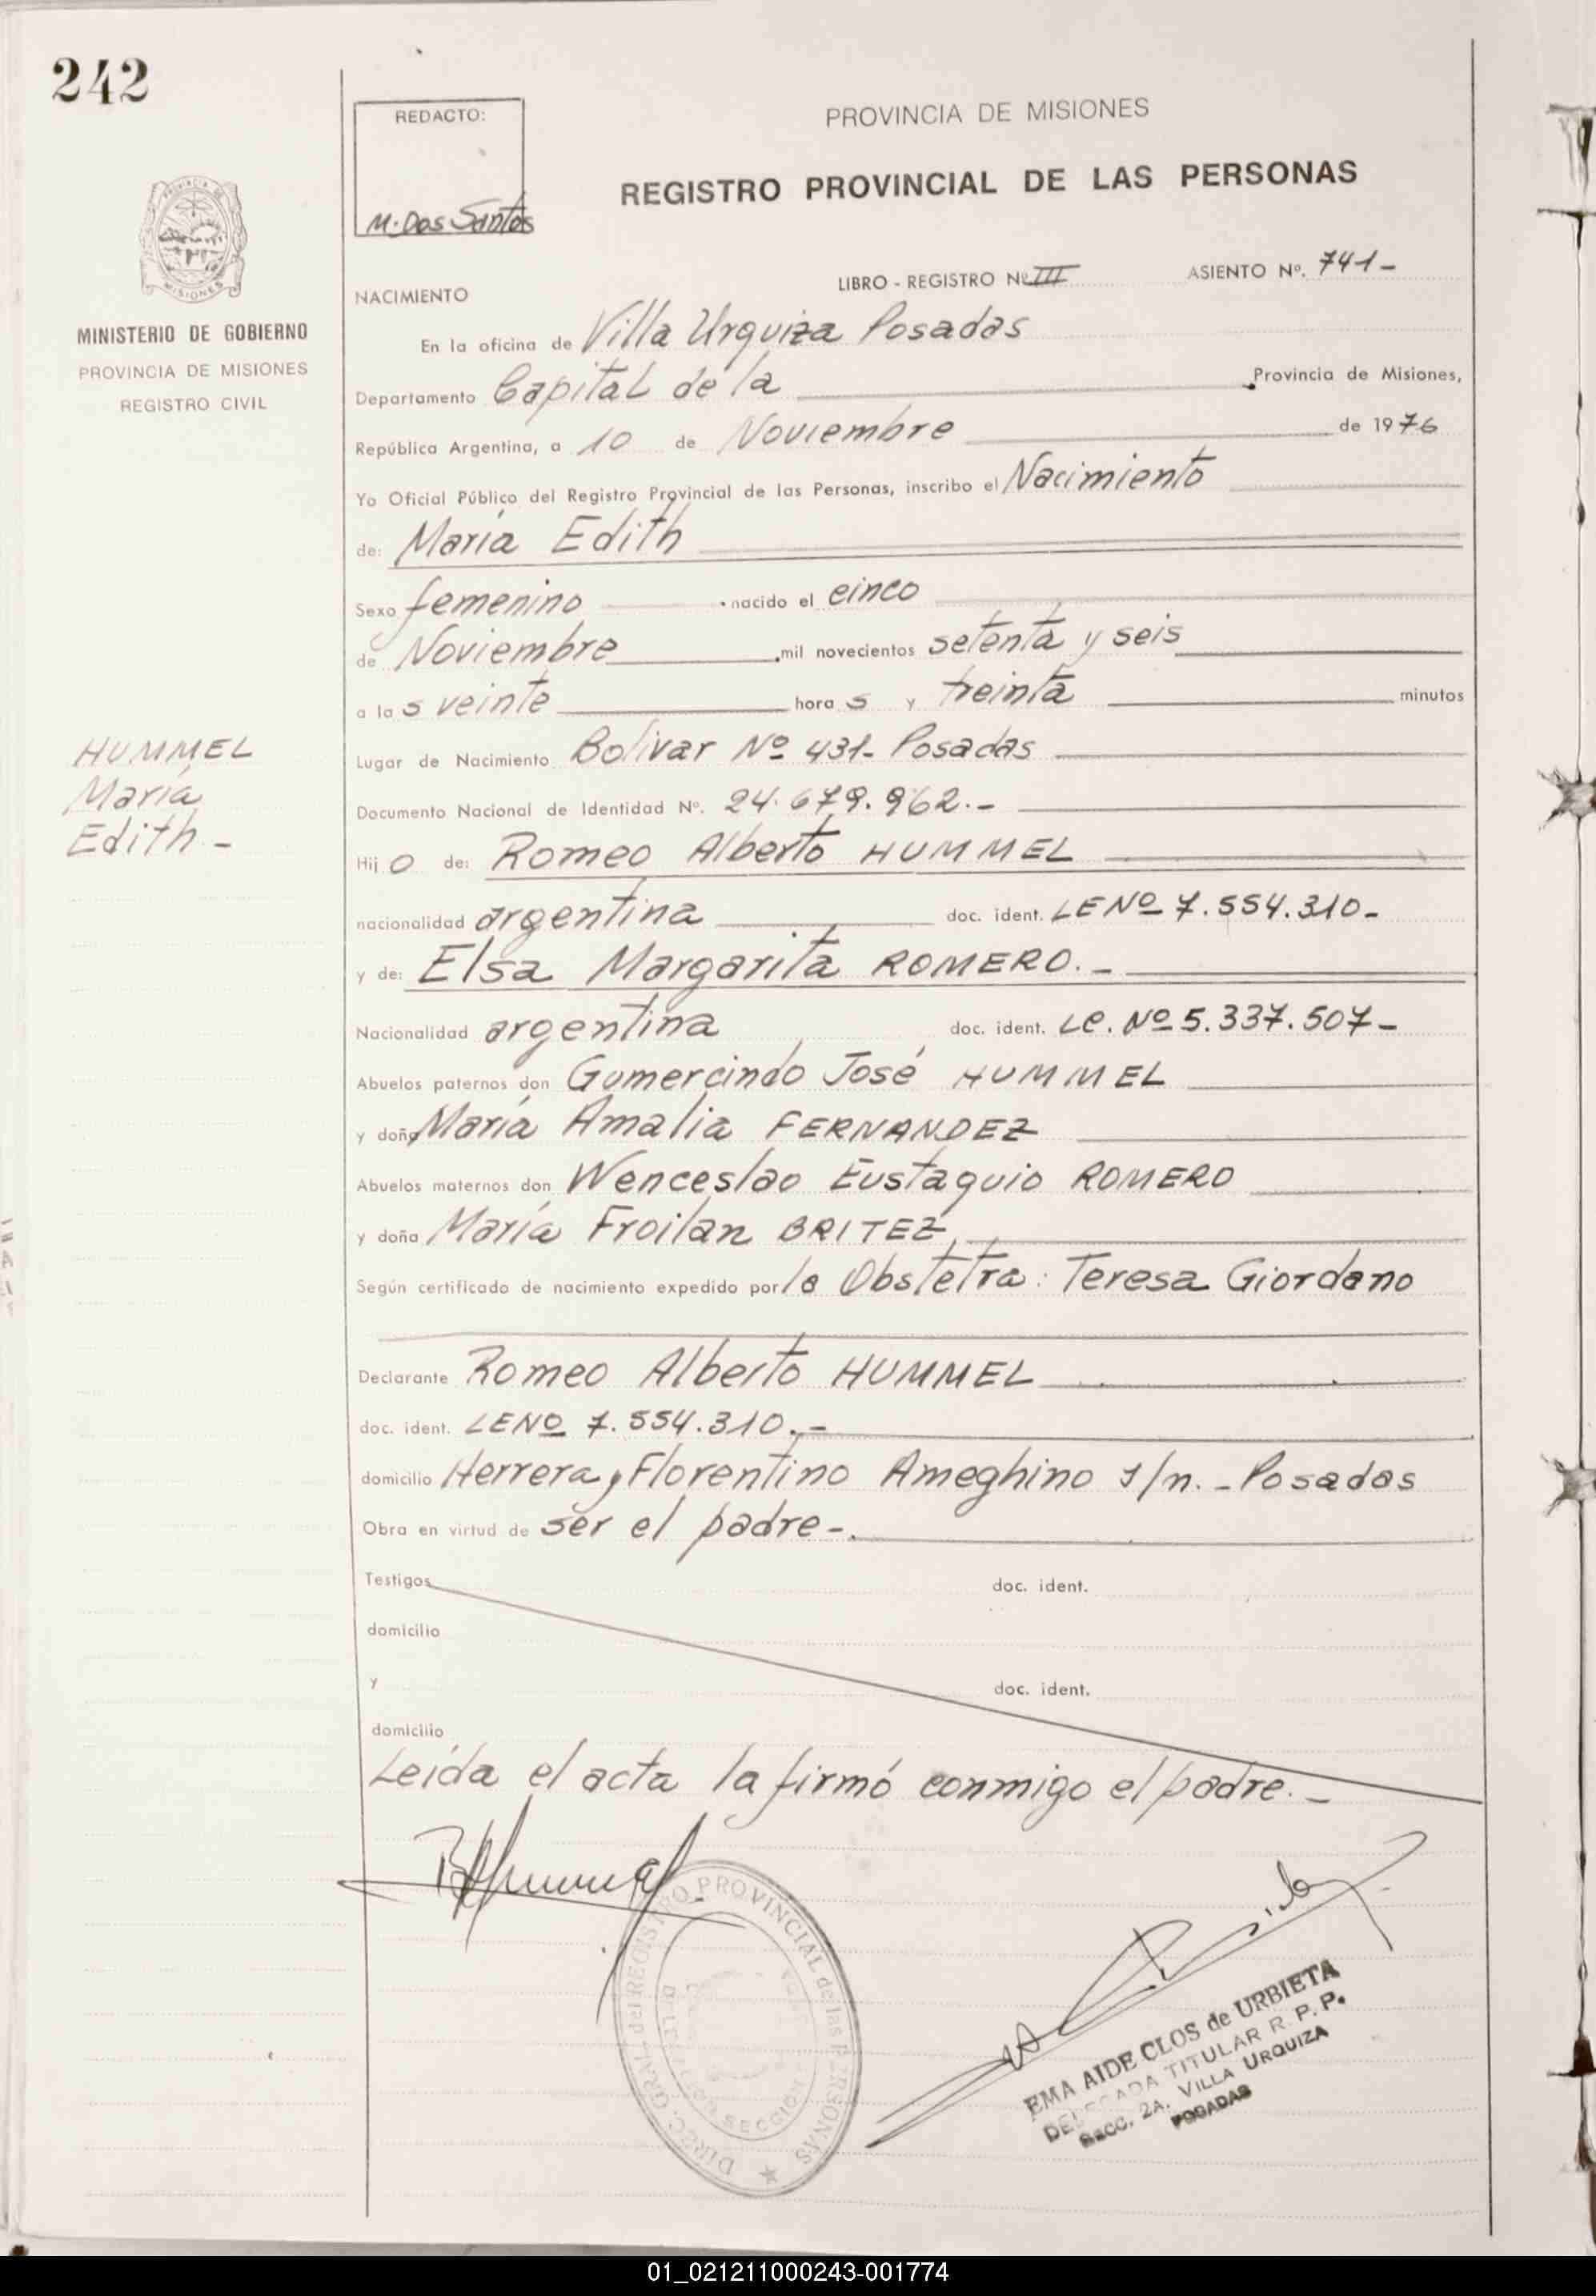 242
REDACTO:
M. Dos Santos
PROVINCIA DE MISIONES
REGISTRO PROVINCIAL DE LAS PERSONAS
PROVINCIA DE
MISIONES
MINISTERIO DE GOBIERNO
PROVINCIA DE MISIONES
REGISTRO CIVIL
NACIMIENTO LIBRO - REGISTRO Nº III ASIENTO Nº. 741-
En la oficina de Villa Urquiza Posadas
Departamento Capital de la Provincia de Misiones,
República Argentina, a 10 de Noviembre de 1976
Yo Oficial Público del Registro Provincial de las Personas, inscribo el Nacimiento
de: María Edith
Sexo femenino nacido el cinco
de Noviembre mil novecientos setenta y seis
a las veinte horas y treinta minutos
Lugar de Nacimiento Bolivar Nº 431- Posadas
HUMMEL
María
Edith -
Documento Nacional de Identidad Nº. 24.679.962.-
Hijo de: Romeo Alberto HUMMEL
nacionalidad argentina doc. ident. LE Nº 7.554.310-
y de: Elsa Margarita ROMERO.-
Nacionalidad argentina doc. ident. Lc. Nº 5.337.507-
Abuelos paternos don Gumercindo José HUMMEL
y doña María Amalia FERNANDEZ
Abuelos maternos don Wenceslao Eustaquio ROMERO
y doña María Froilan BRITEZ,
Según certificado de nacimiento expedido por la Obstetra: Teresa Giordano
Declarante Romeo Alberto HUMMEL
doc. ident. LE Nº 7.554.310.-
domicilio Herrera y Florentino Ameghino s/n.- Posadas
Obra en virtud de ser el padre-.
Testigos doc. ident.
domicilio
y doc. ident.
domicilio
Leída el acta la firmó conmigo el padre.-
DIREC. GRAL. del REGISTRO PROVINCIAL de las PERSONAS
SECCION
EMA AIDE CLOS de URBIETA
DELEGADA TITULAR R. P. P.
SECC. 2A. VILLA URQUIZA
POSADAS
01_021211000243-001774